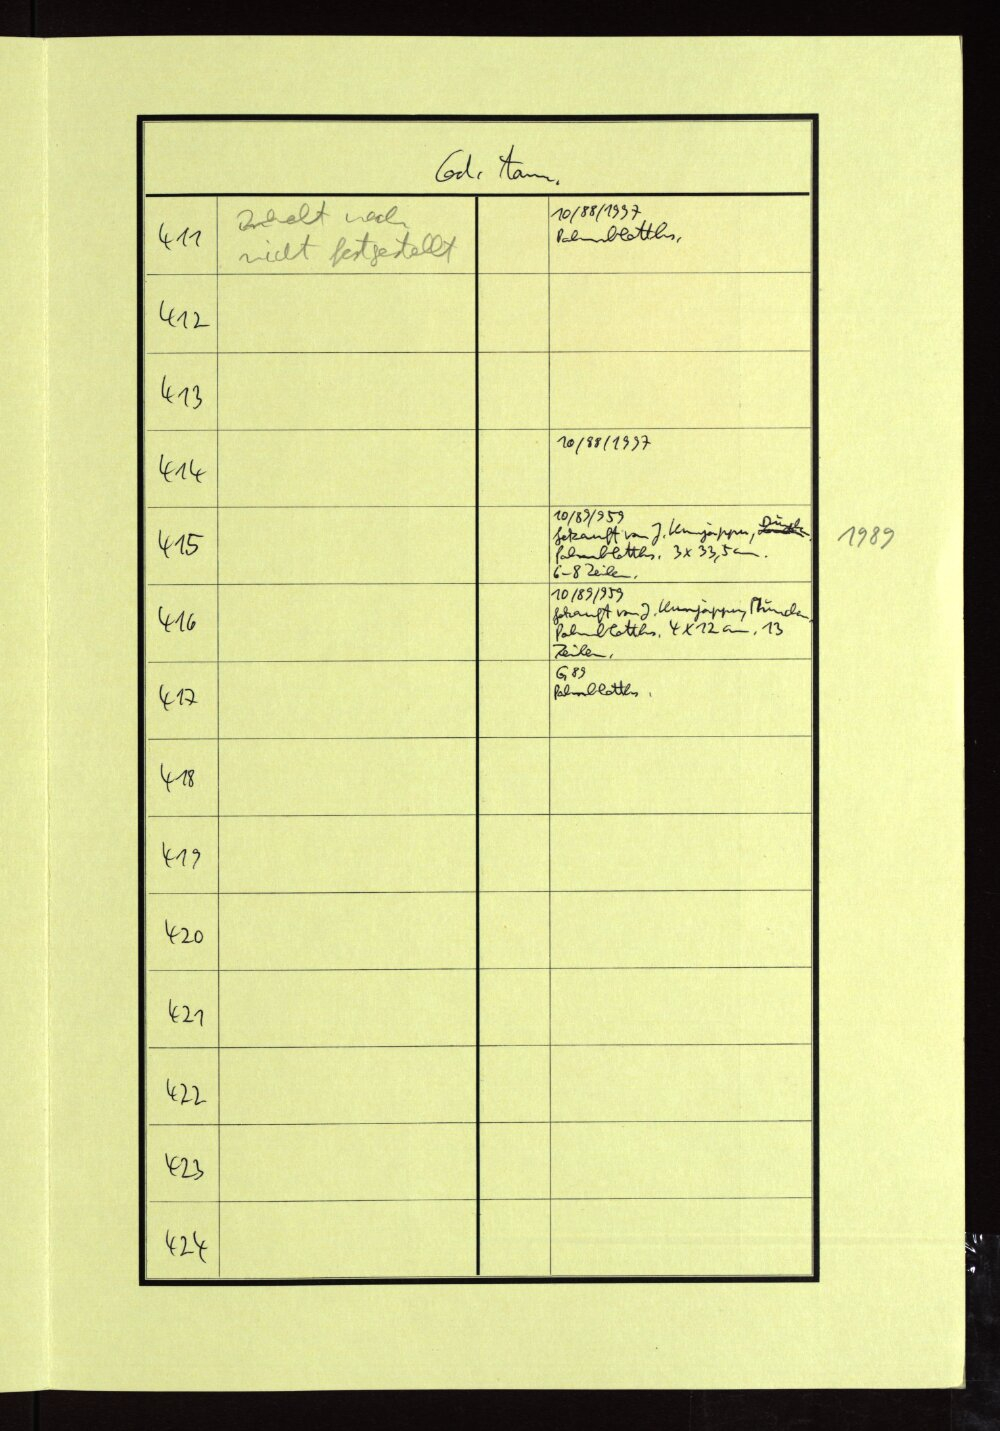 Cod. tam.
411
Inhalt noch
nicht festgestellt
10/88/1997
Palmblatths.
412
413
414
10/88/1997
415
10/89/959
gekauft von J.
Palmblatths. 3 x 33,5 cm.
6-8 Zeilen.
1989
416
10/89/959
gekauft von J. München.
Palmblatths. 4 x 12 cm. 13
Zeilen.
417
G 89
Palmblatths.
418
419
420
421
422
423
424